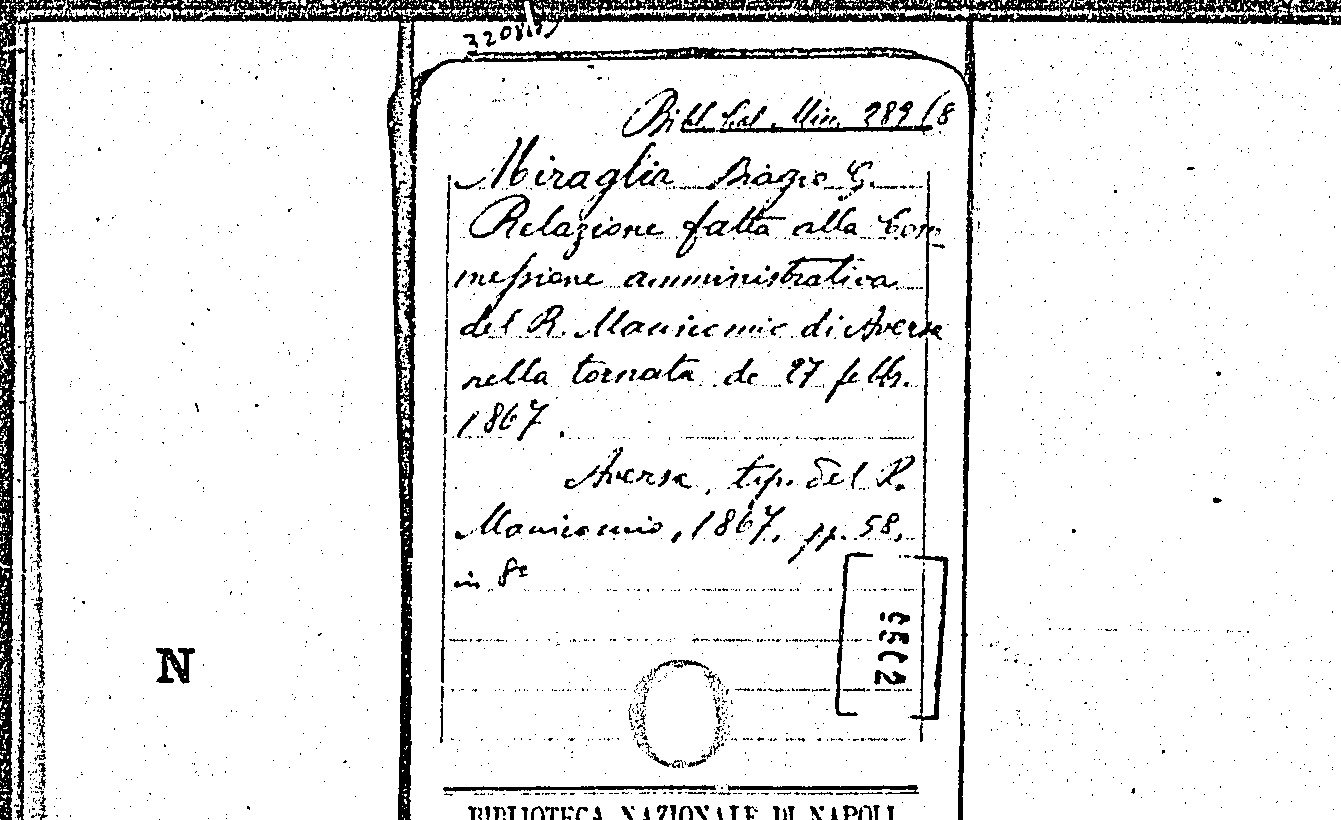 Bibl. Cal. Min. 289 (8
Miraglia Biagio G.
Relazione fatta alla Com
messione amministrativa
del R. Manicomio di Aversa
nella tornata de 27 febb.
1867.
Aversa, tip. del R.
Manicomio, 1867, pp. 58,
in 8º
N
BIBLIOTECA NAZIONALE DI NAPOLI